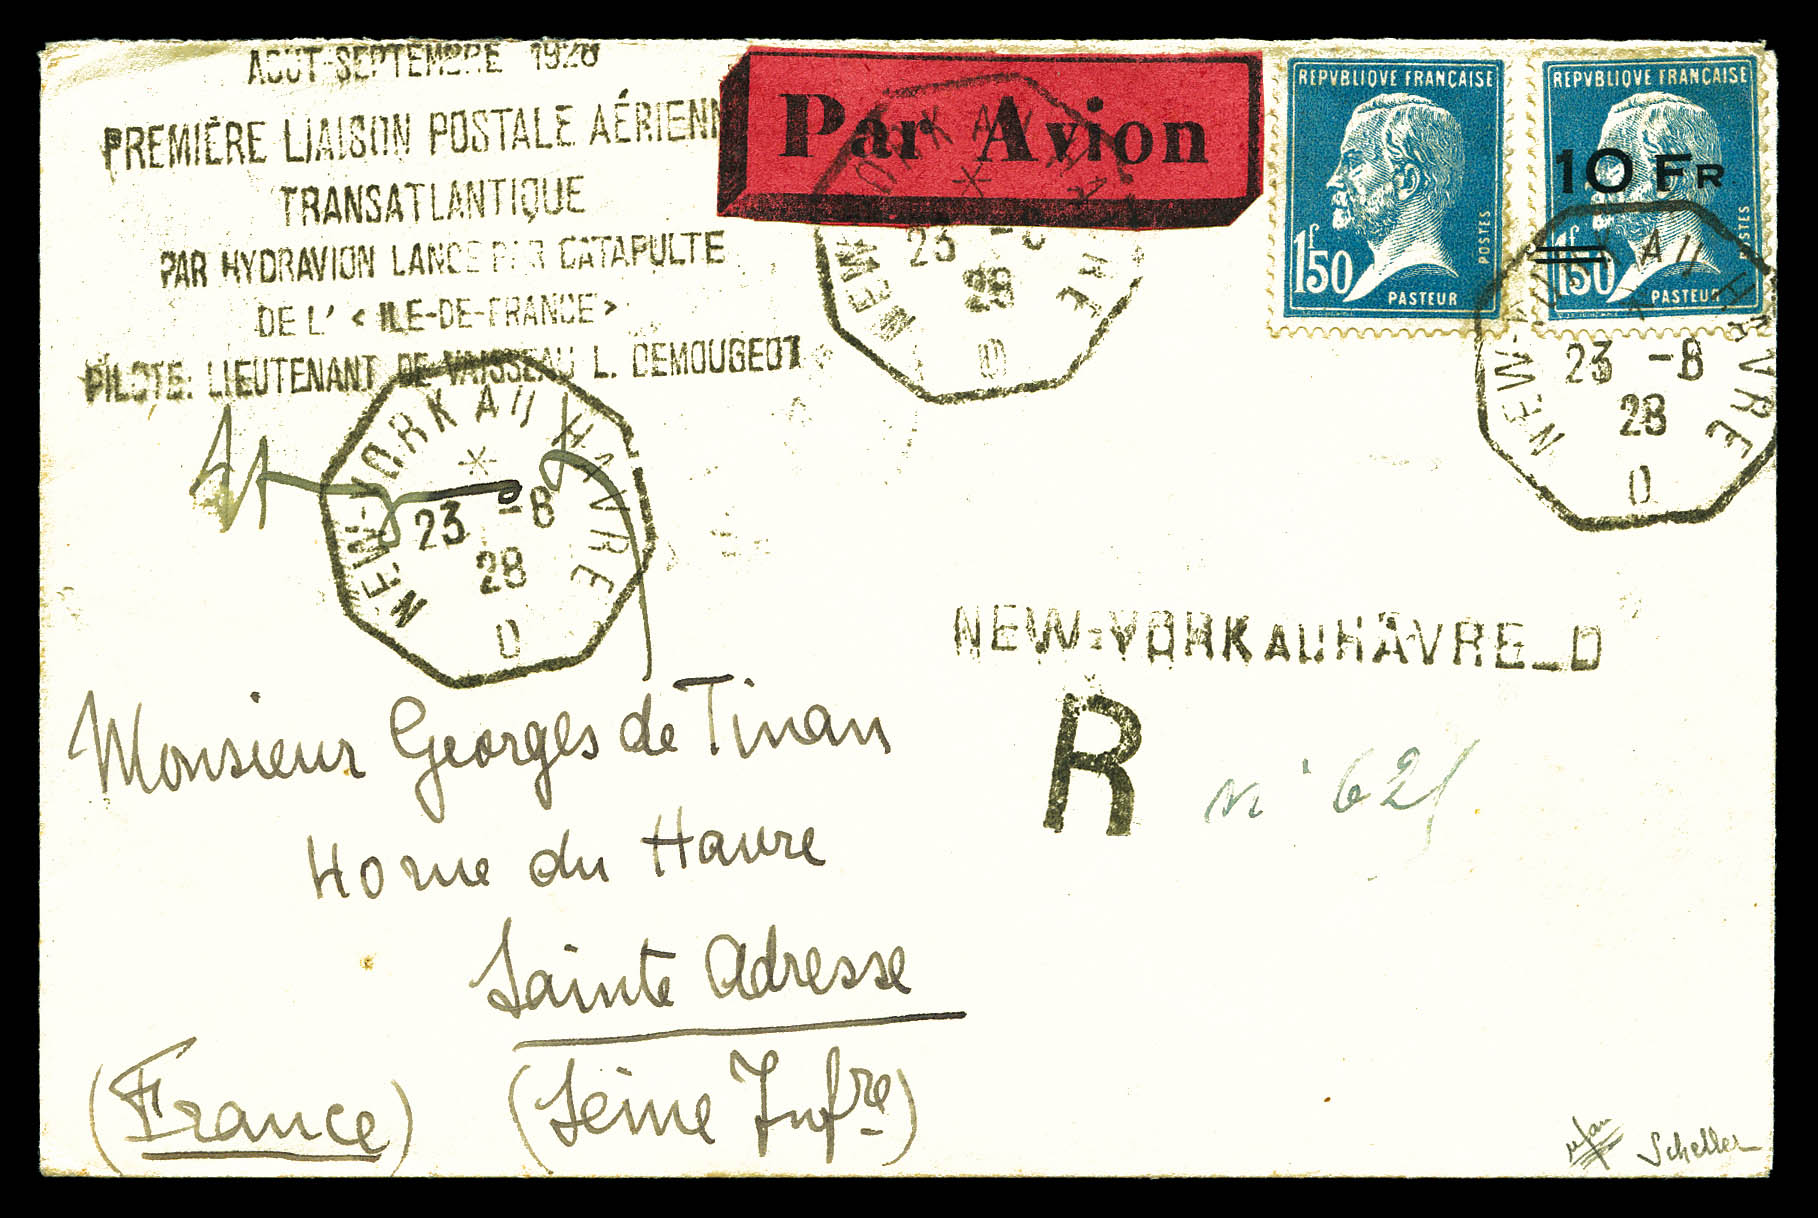 AOUT-SEPTEMBRE 1928
PREMIÈRE LIAISON POSTALE AÉRIENN
TRANSATLANTIQUE
PAR HYDRAVION LANCE PAR CATAPULTE
DE L' < ILE-DE-FRANCE >
PILOTE: LIEUTENANT DE VAISSEAU L. DEMOUGEOT
Par Avion
NEW-YORK AU HAVRE
23 -8
28
D
REPVBLIQVE FRANÇAISE
1F50
POSTES
PASTEUR
REPVBLIQVE FRANÇAISE
10 FR
1F50
POSTES
PASTEUR
NEW-YORK AU HAVRE
23 -8
28
D
NEW-YORK AU HAVRE
23 -8
28
D
NEW-YORK AU HAVRE_D
R
n° 625
Monsieur Georges de Tinan
40 rue du Havre
Sainte Adresse
(France) (Seine Infre)
Scheller